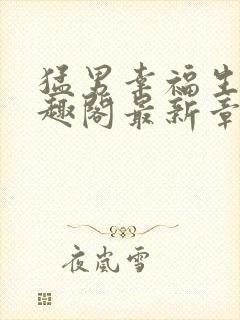 猛男幸福生
趣阁最新章
夜岚雪